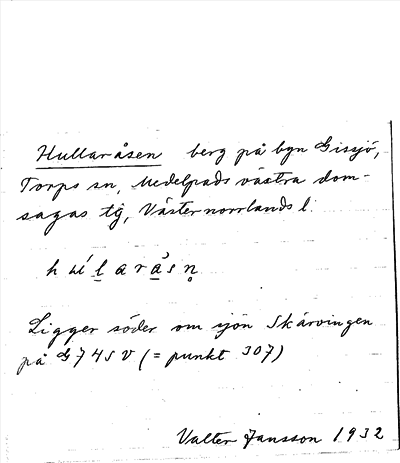 Hullaråsen berg på byn Gissjö,
Torps sn, Medelpads västra dom-
sagas tg, Västernorrlands l.
Ligger söder om sjön Skärvingen
på G74SV (= punkt 307)
Valter Jansson 1932